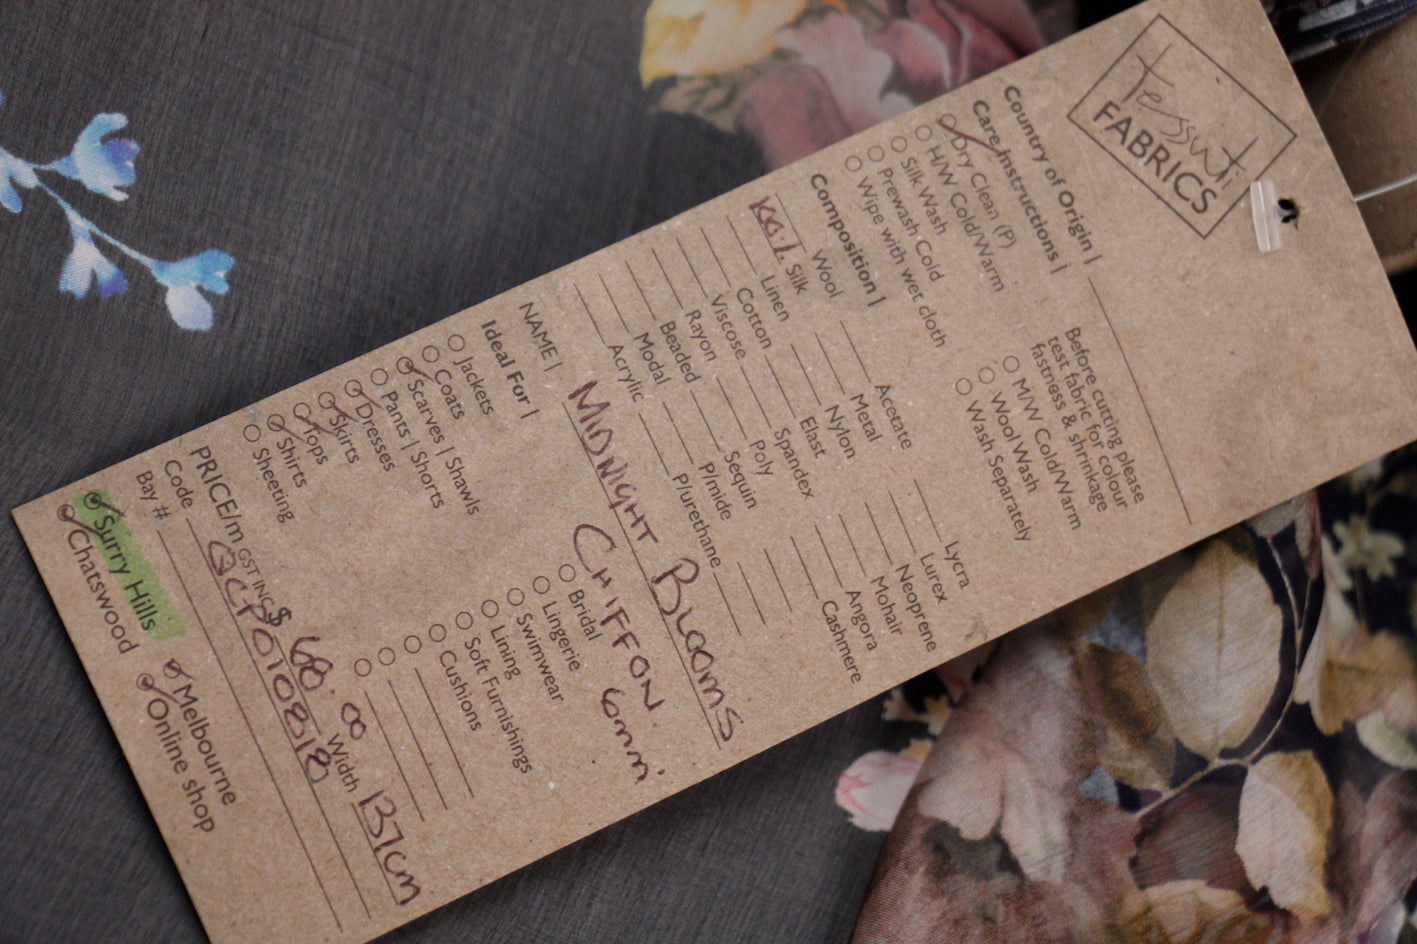 tessuti
FABRICS
Country of Origin |
Care Instructions |
Dry Clean (P)
H/W Cold/Warm
Silk Wash
Prewash Cold
Wipe with wet cloth
Before cutting please
test fabric for colour
fastness & shrinkage
M/W Cold/Warm
Wool Wash
Wash Separately
Composition |
Wool Acetate Lycra
100% Silk Metal Lurex
Linen Nylon Neoprene
Cotton Elast Mohair
Viscose Spandex Angora
Rayon Poly Cashmere
Beaded Sequin
Modal P/mide
Acrylic P/urethane
NAME | MIDNIGHT BLOOMS
CHIFFON 6mm.
Ideal For |
Jackets
Coats
Scarves | Shawls
Pants | Shorts
Dresses
Skirts
Tops
Shirts
Sheeting
Bridal
Lingerie
Swimwear
Lining
Soft Furnishings
Cushions
PRICE/m GST INC $ 68.00 Width 137cm
Code QCP0108818
Bay #
Surry Hills Melbourne
Chatswood Online shop